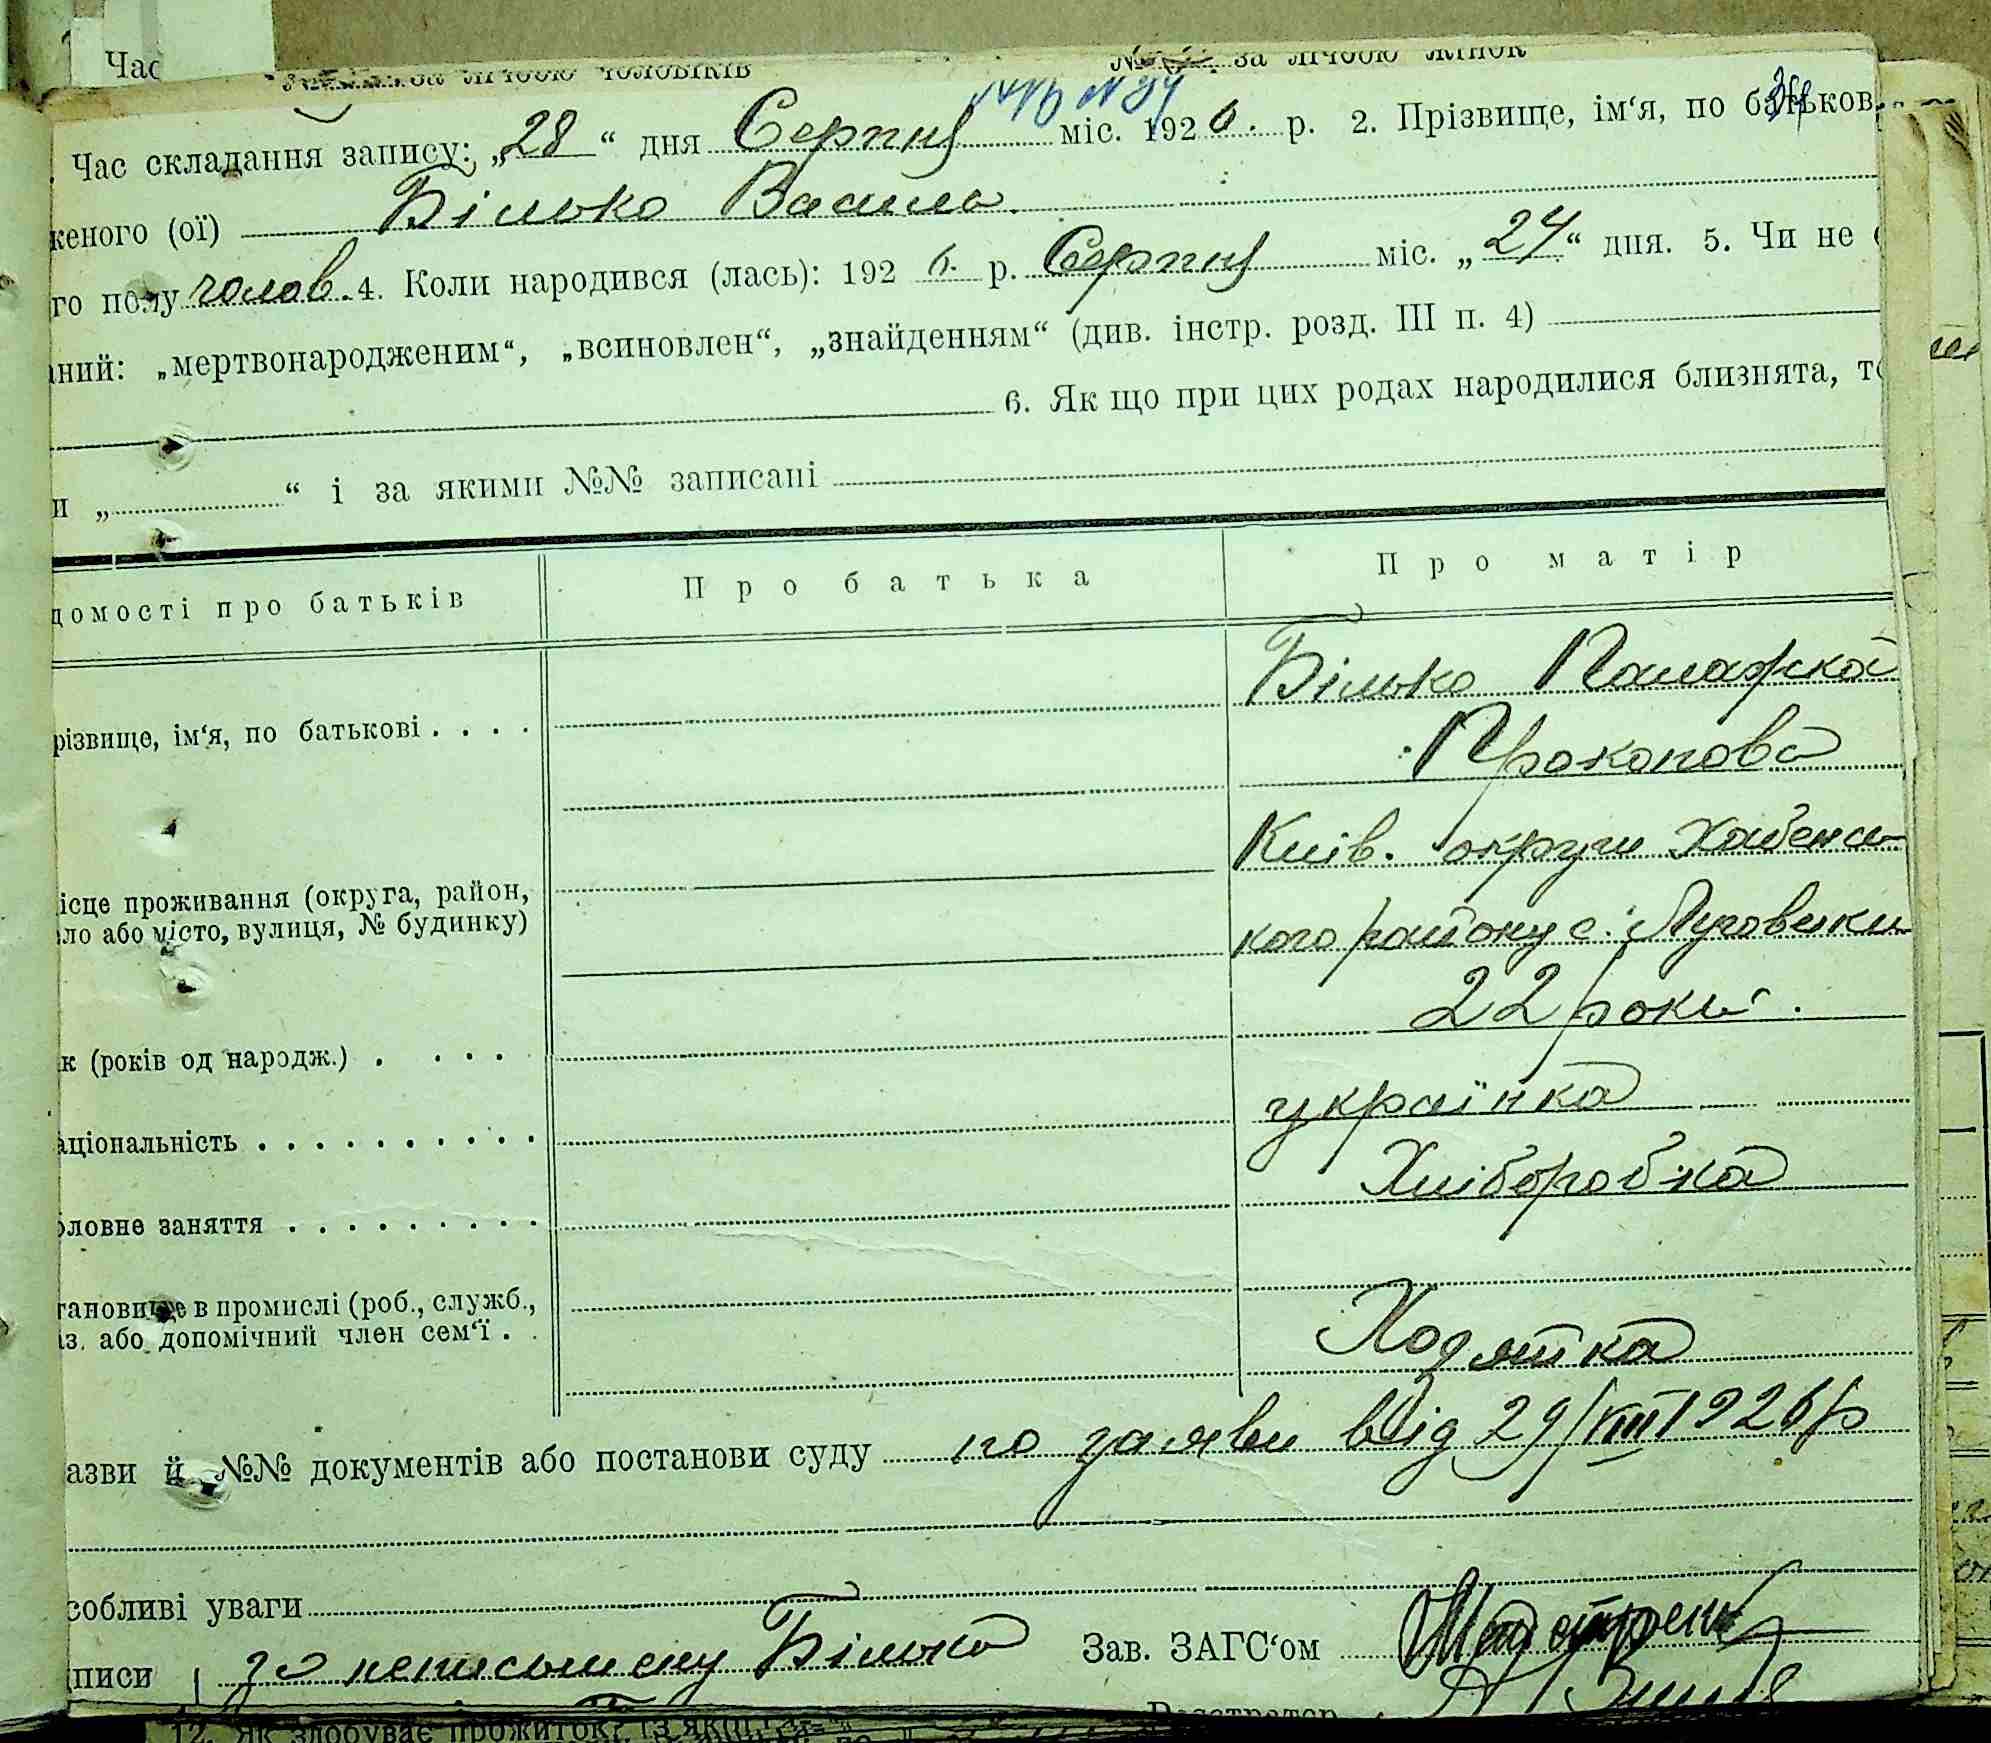 Час
за лічбою чоловіків № за лічбою жінок
№ 34
Час складання запису: „28“ дня Серпня міс. 1926. р. 2. Прізвище, ім‘я, по батьков
женого (ої) Білько Василь.
го полу чолов. 4. Коли народився (лась): 192 6. р. Серпня міс. „24“ дня. 5. Чи не є
аний: „мертвонародженим“, „всиновлен“, „знайденням“ (див. інстр. розд. III п. 4)
6. Як що при цих родах народилися близнята, то
и „ “ і за якими №№ записані
домості про батьків Про батька Про матір
Білько Палажка
різвище, ім‘я, по батькові . . . . Прокопова
Київ. округи Хабенсь
ісце проживання (округа, район,
ло або місто, вулиця, № будинку) кого району с. Луговики
ік (років од народж.) . . . . 22 роки.
аціональність . . . . . . . . . . українка
оловне заняття . . . . . . . . . Хліборобка
тановище в промислі (роб., служб.,
із. або допомічний член сем‘ї . . Ходяйка
азви й №№ документів або постанови суду по заяви від 29/VIII 1926 р
собливі уваги
писи за неписьмену Білько Зав. ЗАГС‘ом
Реєстратор
12. Як здобуває прожиток?